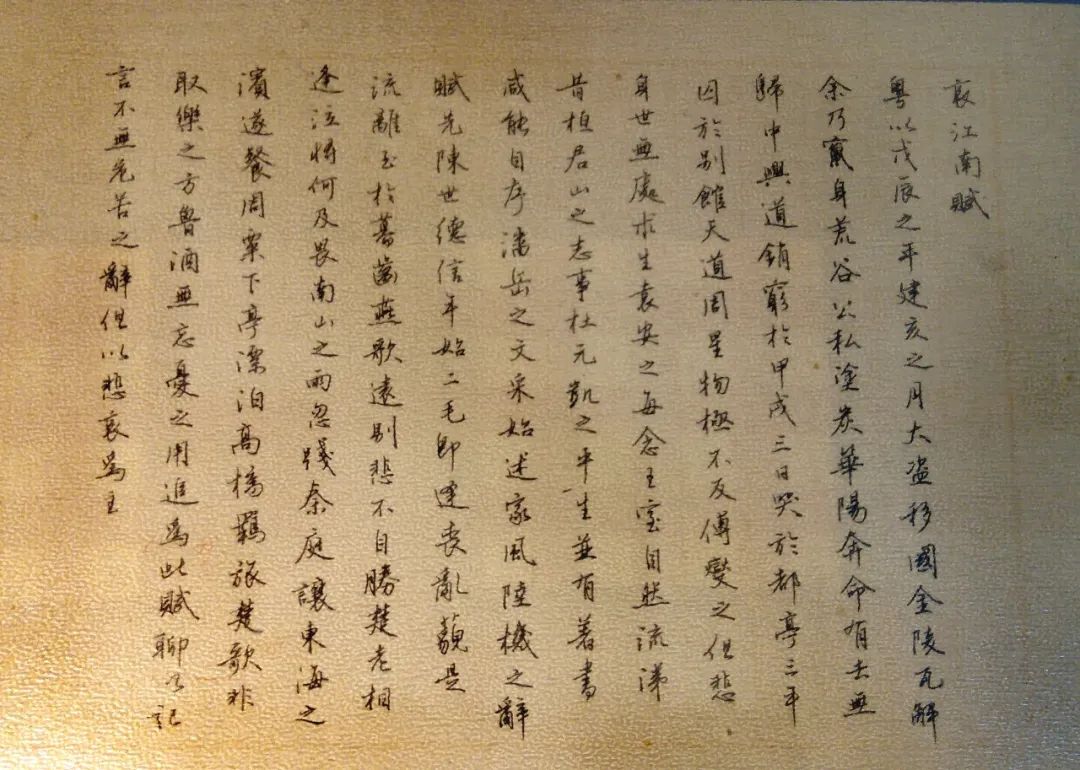 哀江南賦
粵以戊辰之年建亥之月大盜移國金陵瓦解
余乃竄身荒谷公私塗炭華陽奔命有去無
歸中興道銷窮於甲戌三日哭於都亭三年
囚於別館天道周星物極不反傅燮之但悲
身世無處求生袁安之每念王室自然流涕
昔桓君山之志事杜元凱之平生並有著書
咸能自序潘岳之文采始述家風陸機之辭
賦先陳世德信年始二毛即逢喪亂藐是
流離至於暮齒燕歌遠別悲不自勝楚老相
逢泣將何及畏南山之雨忽踐秦庭讓東海之
濱遂餐周粟下亭漂泊高橋羈旅楚歌非
取樂之方魯酒無忘憂之用追為此賦聊以記
言不無危苦之辭但以悲哀為主